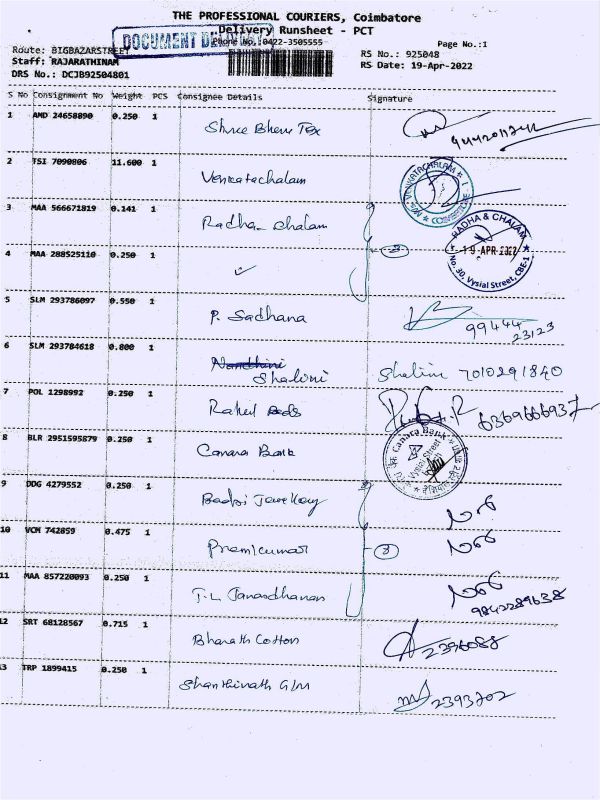 THE PROFESSIONAL COURIERS, Coimbatore
Delivery Runsheet - PCT
DOCUMENT DELIVERY
Phone No.:0422-3505555
Page No.:1
Route: BIGBAZARSTREET
Staff: RAJARATHINAM
DRS No.: DCJB92504801
RS No.: 925048
RS Date: 19-Apr-2022
S No Consignment No Weight PCS Consignee Details Signature
1 AMD 24658890 0.250 1 Shree Bhem Tex
2 TSI 7090806 11.600 1 Venkatachalam
M/s. VENKATACHALAM COIMBATORE
3 MAA 566671819 0.141 1 Radha chalam
4 MAA 288525110 0.250 1
RADHA & CHALAM
19 APR 2022
No. 30, Vysial Street, CBE-1
5 SLM 293786097 0.550 1 P. Sadhana 99444
23123
6 SLM 293784618 0.800 1 Nandhini
Shalini Shalini 7010291840
7 POL 1298992 0.250 1 Rahul 6369666937
8 BLR 2951595879 0.250 1 Canara Bank
Canara Bank
Vysial Street
9 DDG 4279552 0.250 1 Badri Jewellery
10 VCM 742859 0.475 1 Premkumar 3
11 MAA 857220093 0.250 1 T.L Janardhanan
9842289638
12 SRT 68128567 0.715 1 Bharath Cotton 2396088
13 TRP 1899415 0.250 1 Shanthinath G/M 2393202